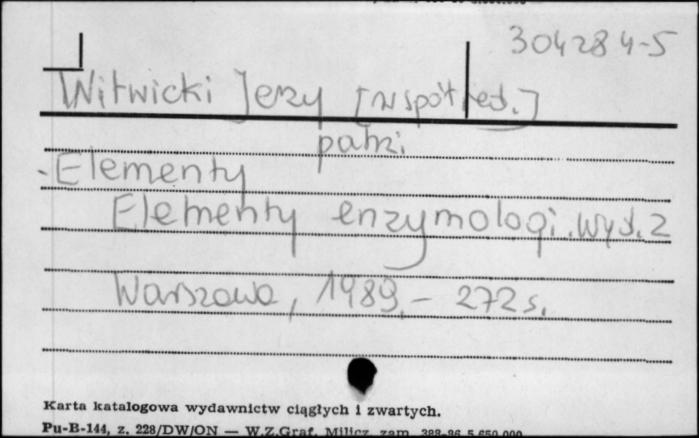 304284-5
Witwicki Jerzy [współred.]
patrz:
-Elementy
Elementy enzymologi. Wyd. 2
Warszawa, 1989. - 272 s.
Karta katalogowa wydawnictw ciągłych i zwartych.
Pu-B-144, z. 228/DW/ON — W.Z.Graf. Milicz, zam.